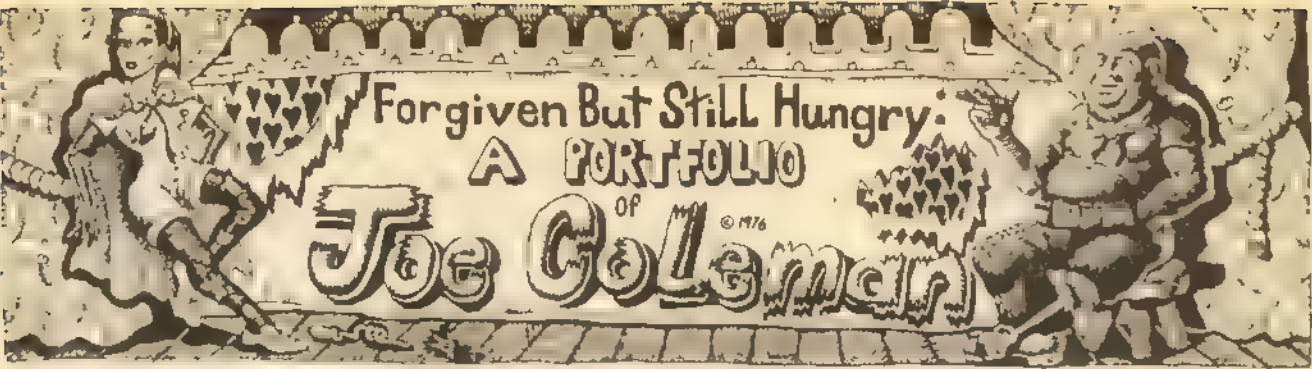 Forgiven But Still Hungry:
A PORTFOLIO
of
Joe Coleman
© 1976